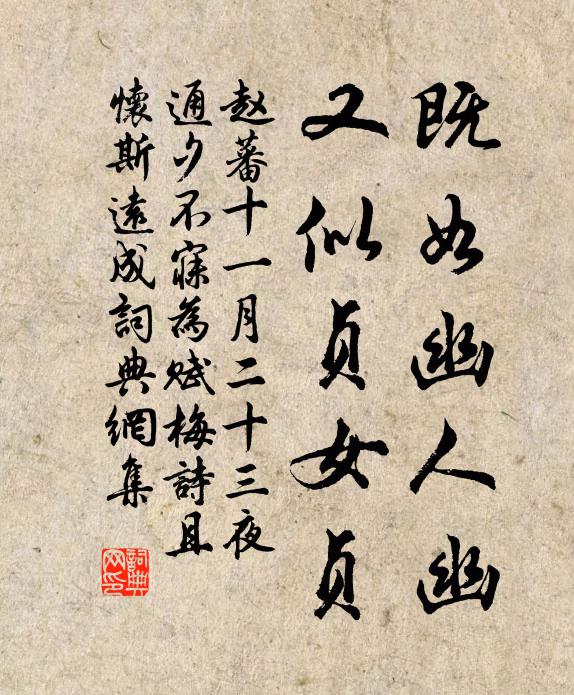 既如幽人幽
又似貞女貞
赵蕃十一月二十三夜
通夕不寐為赋梅詩且
懷斯遠成詞典網集
詞典网印